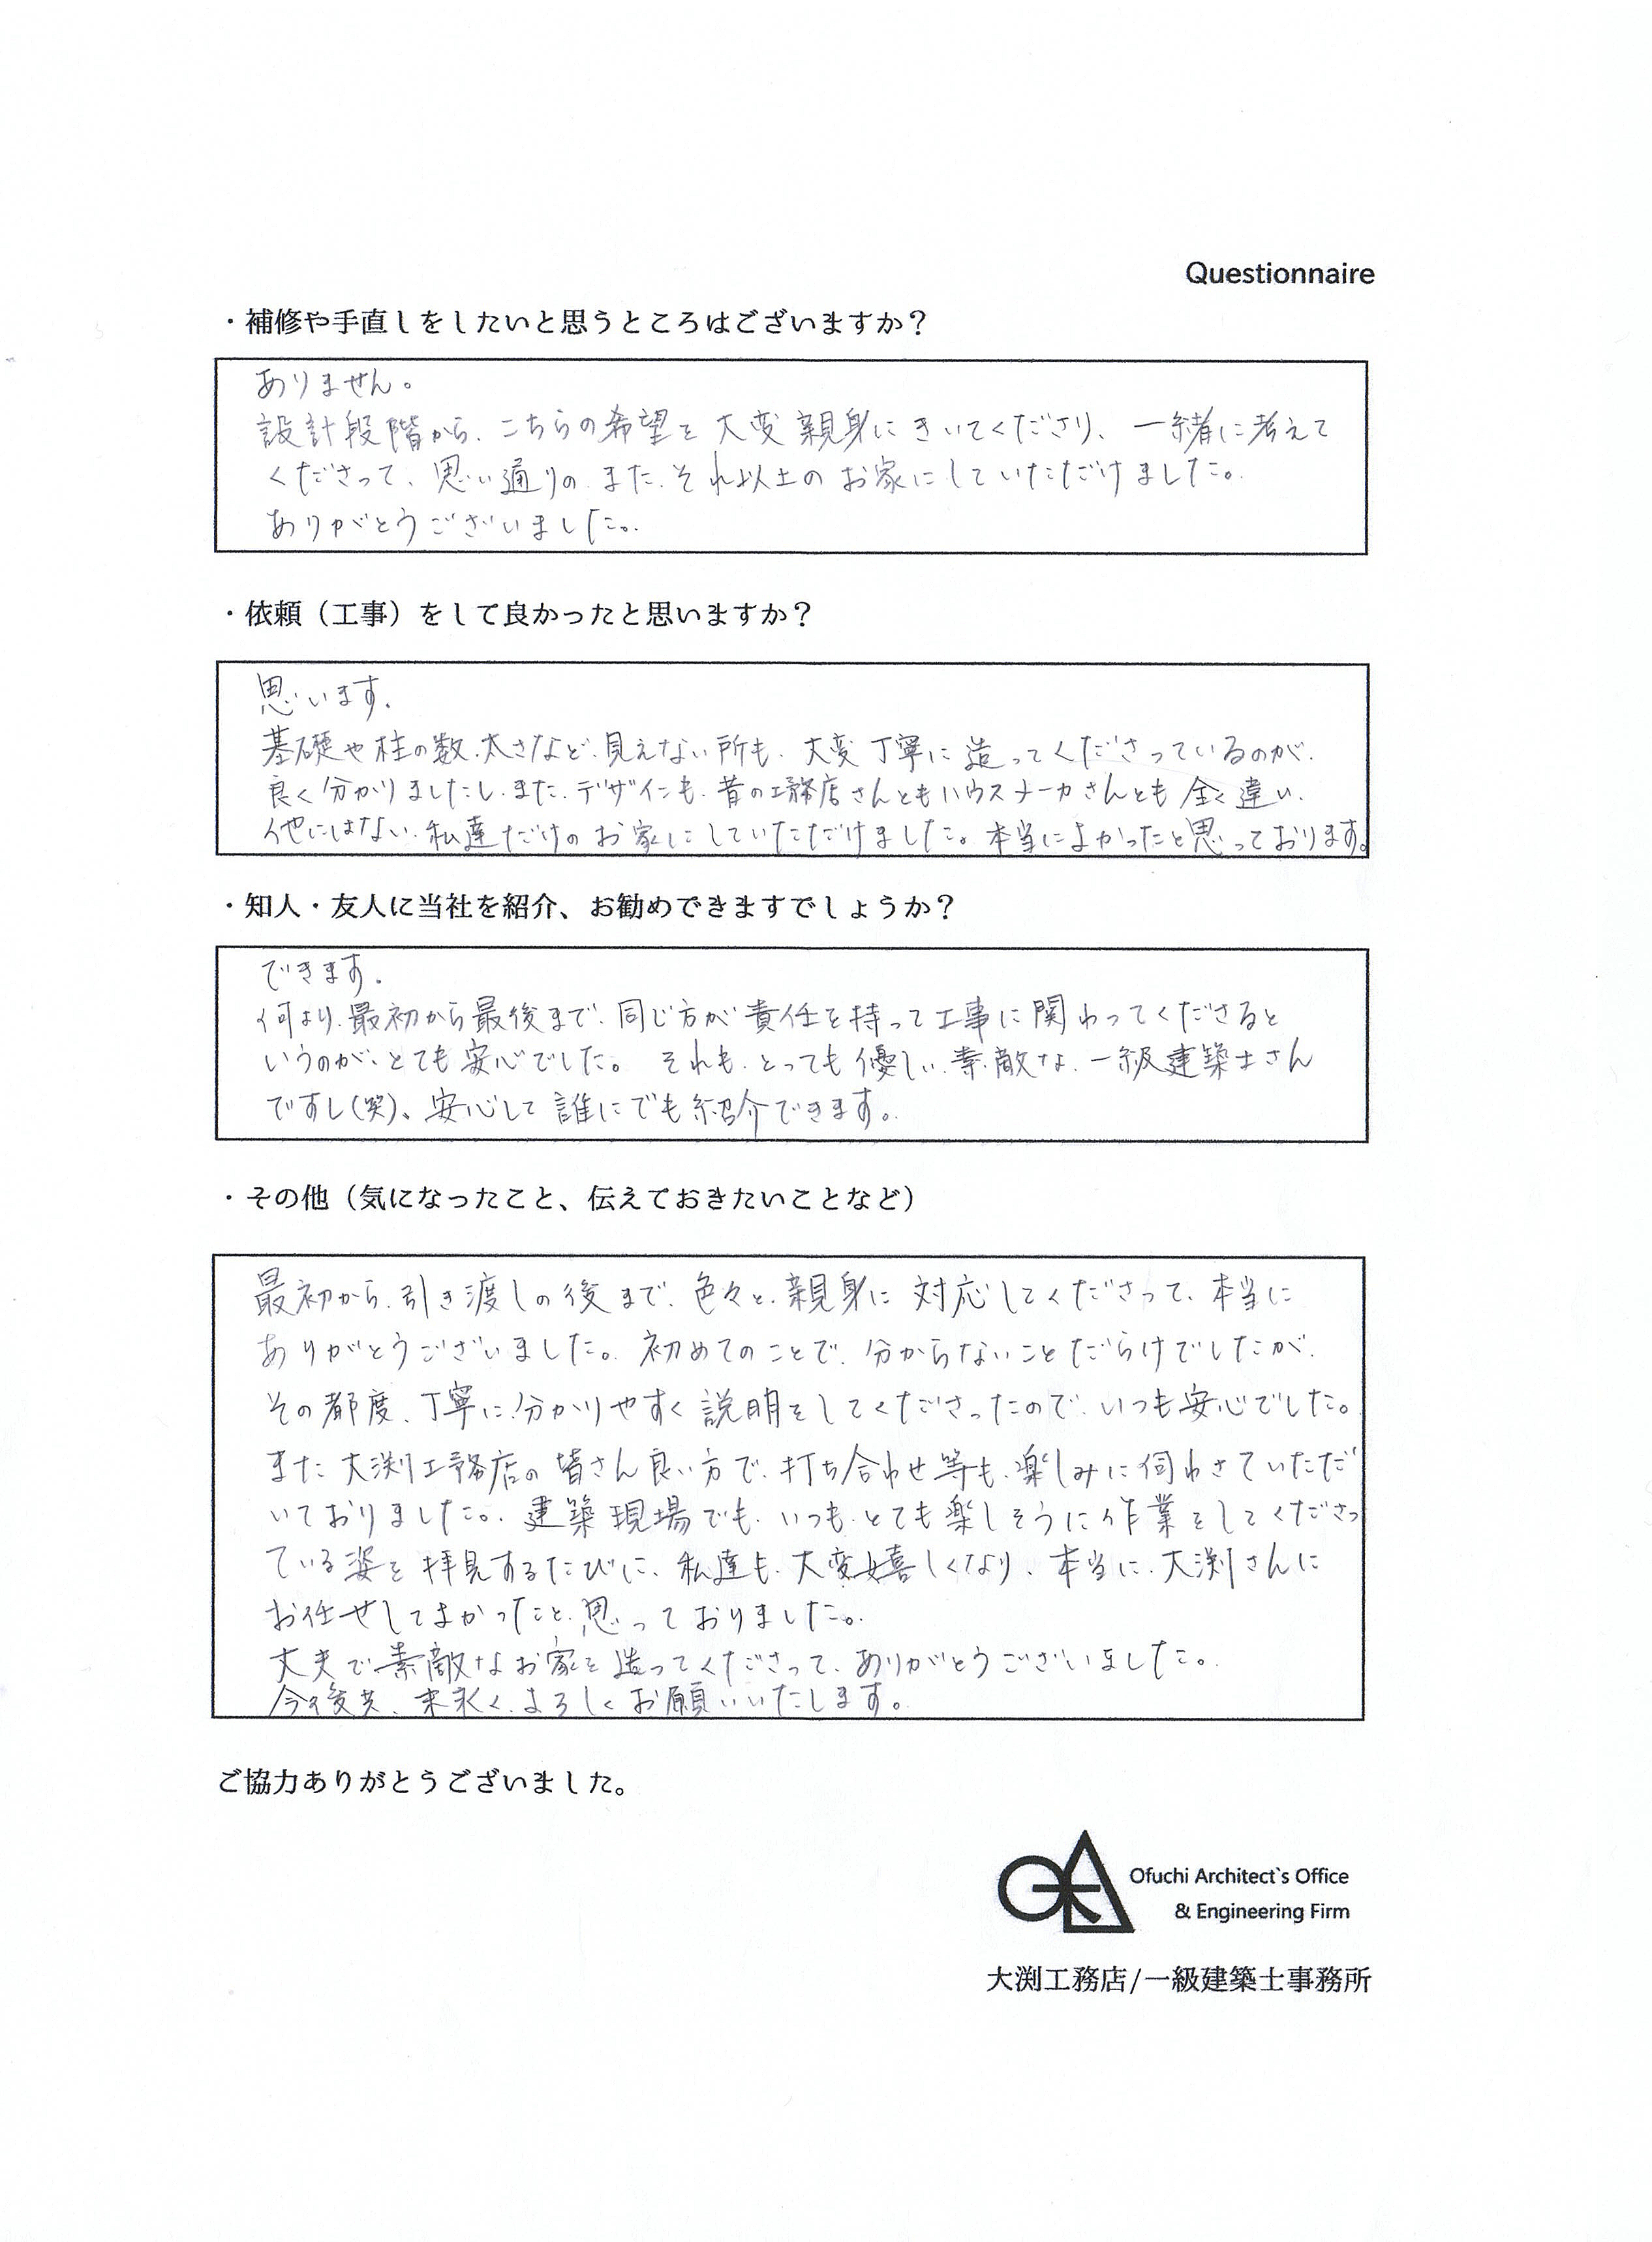 Questionnaire
・補修や手直しをしたいと思うところはございますか？
ありません。
設計段階から、こちらの希望を大変親身にきいてくださり、一緒に考えて
くださって、思い通りの、また、それ以上のお家にしていただけました。
ありがとうございました。
・依頼（工事）をして良かったと思いますか？
思います。
基礎や柱の数、太さなど、見えない所も、大変丁寧に造ってくださっているのが、
良く分かりましたし、また、デザインも、昔の工務店さんともハウスメーカさんとも全く違い、
他にはない、私達だけのお家にしていただけました。本当によかったと思っております。
・知人・友人に当社を紹介、お勧めできますでしょうか？
できます。
何より、最初から最後まで、同じ方が責任を持って工事に関わってくださると
いうのが、とても安心でした。それも、とっても優しい、素敵な、一級建築士さん
ですし(笑)、安心して誰にでも紹介できます。
・その他（気になったこと、伝えておきたいことなど）
最初から、引き渡しの後まで、色々と、親身に対応してくださって、本当に
ありがとうございました。初めてのことで、分からないことだらけでしたが、
その都度、丁寧に、分かりやすく説明をしてくださったので、いつも安心でした。
また大渕工務店の皆さん良い方で、打ち合わせ等も、楽しみに伺わさていただ
いておりました。建築現場でも、いつも、とても楽しそうに作業をしてくださっ
ている姿を拝見するたびに、私達も、大変嬉しくなり、本当に、大渕さんに
お任せしてよかったと、思っておりました。
丈夫で素敵なお家を造ってくださって、ありがとうございました。
今後共、末永く、よろしくお願いいたします。
ご協力ありがとうございました。
Ofuchi Architect`s Office
& Engineering Firm
大渕工務店/一級建築士事務所